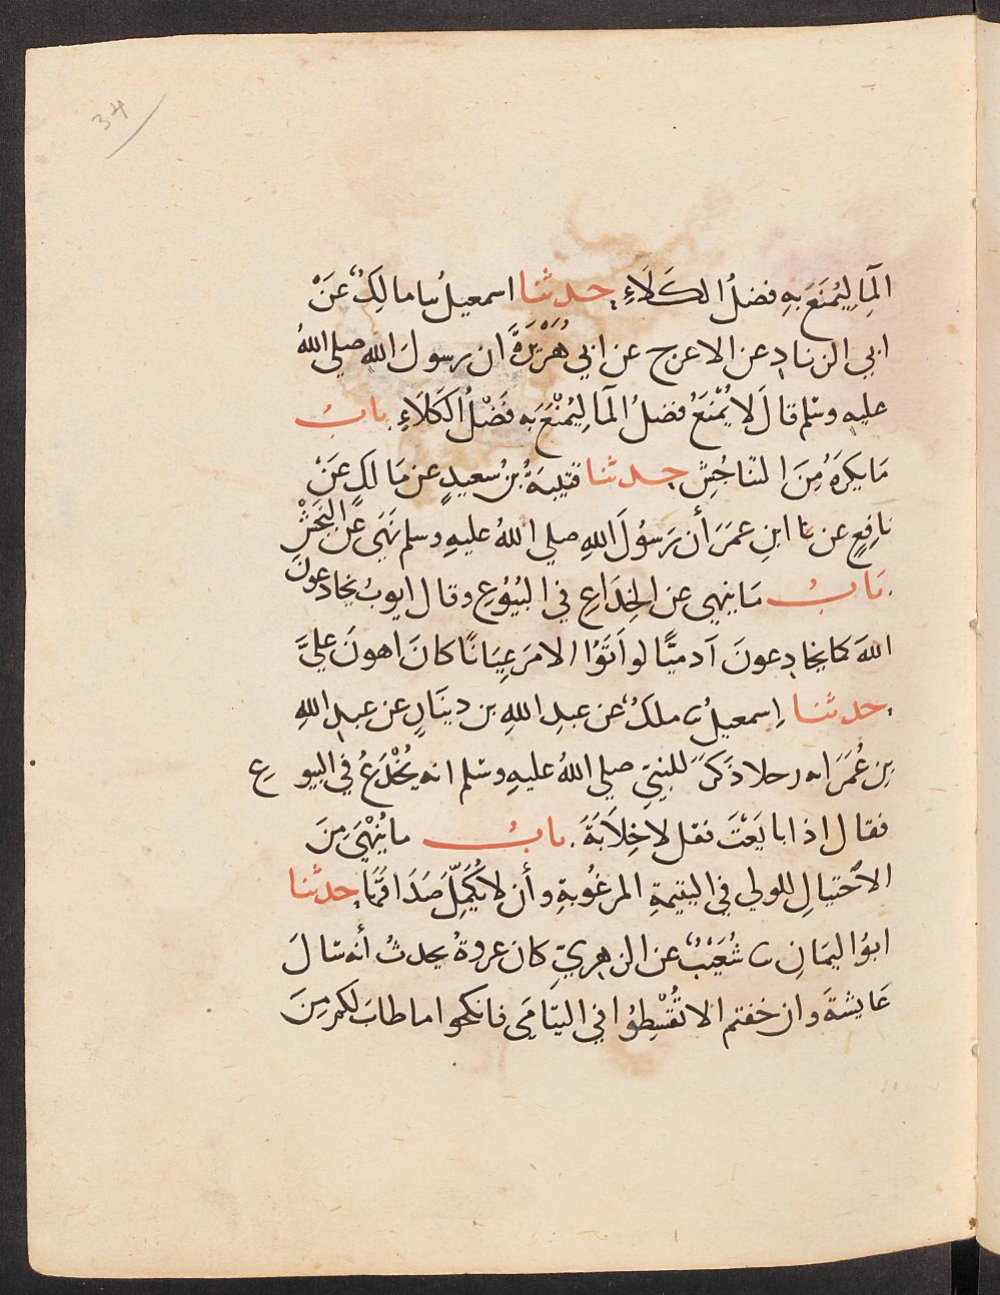 34
الْمَآءِ لِيُمْنَعَ بِهِ فضلُ الكَلَاءِ حدثنا اسمعيلُ نا مالِكٌ عَنْ
ابي الزناد عن الاعرج عن ابي هُرَيْرَةَ ان رسولَ الله صلي اللهُ
عليهِ وسّلم قالَ لا يُمْنَعُ فضلُ المآءِ لِيُمْنَعَ بِه فَضْلُ الكَلَاءِ بابُ
مَا يكرَهُ مِنَ التناجُشِ حدثنا قتيبةُ بنُ سعيدٍ عن مَالكٍ عَنْ
نافِعٍ عن ابنِ عمَرَ أن رَسُولَ اللهِ صلي اللهُ عليهِ وسلم نَهَى عَنِ النَّجْشِ
بَابُ مَا ينهي عن الخِدَاعِ في البُيُوْعِ وقال ايوبُ يخادعونَ
اللهَ كما يخادِعونَ آدميًّا لو اَتَوُا الامرَ عِيَانًا كانَ اهونَ عليَّ
حدثنا اِسمعيلُ نا ملكٌ عن عبدِ اللهِ بن دينَارٍ عن عبدِ اللهِ
بنِ عُمَرَ ان رجلا ذَكَرَ للنبيّ صلي اللهُ عليهِ وسّلم انه يُخْدَعُ في البيوع
فقال اذا بايَعْتَ فقل لا خِلَابَةَ بابُ ما يُنْهَيَ مِنَ
الاحتيالِ للولي في اليتيمةِ المرغُوبةِ وأن لا يُكَمِّلَ صَدَاقَهَا حدثنا
ابوُ اليمَانِ نا شُعَيْبٌ عن الزهريّ كان عروةُ يحدثُ أنه سَالَ
عَايشةَ وان خفتم الا تُقْسِطُوا في اليتَامَي فانكحوا ما طابَ لكم مِنَ